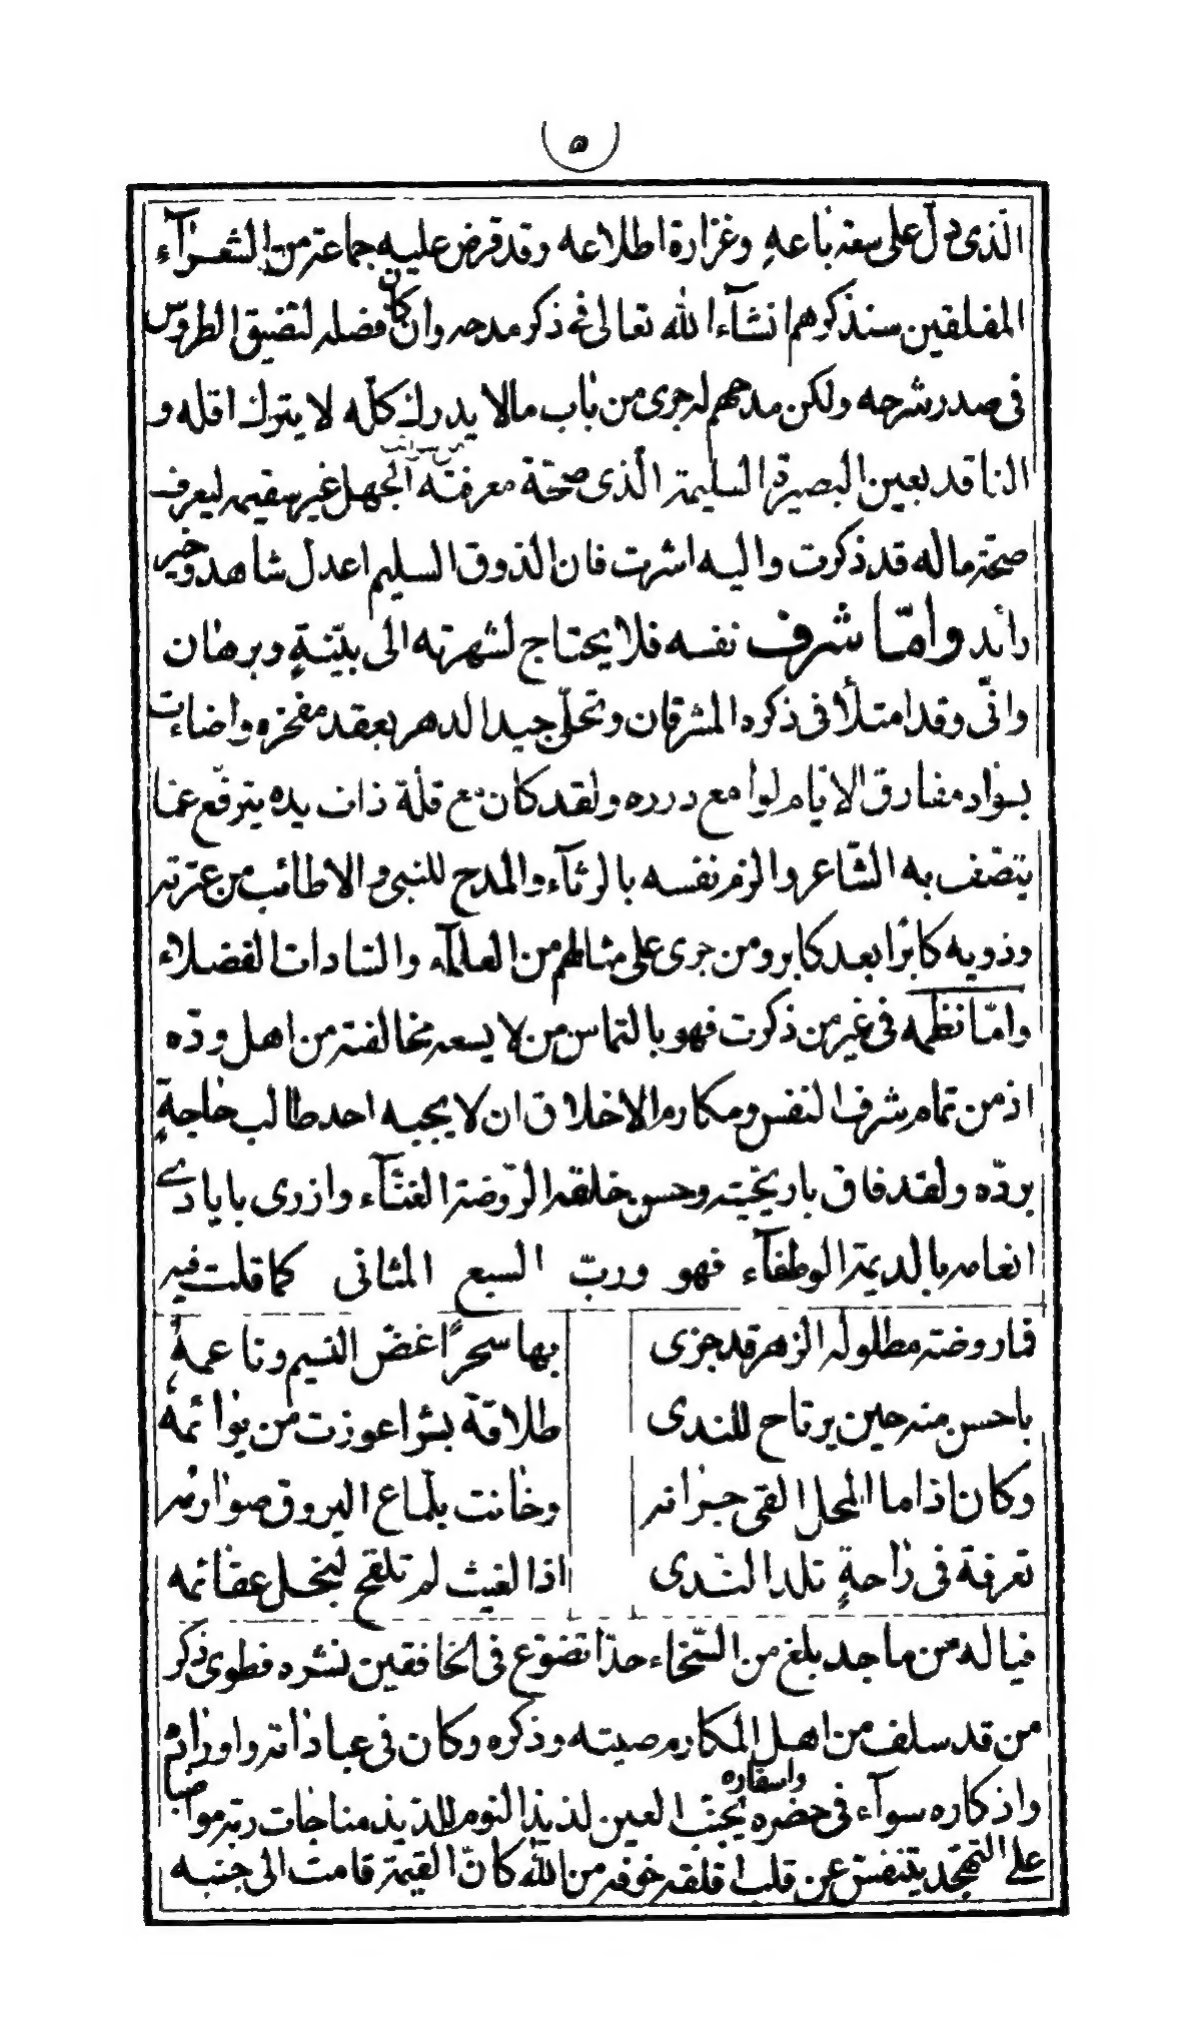 ٥
الّذى دلّ على سعة باعهِ وغزارة اطلاعه وقد قرض عليه جماعة من الشعرآء
المفلقين سنذكرهم انشآء الله تعالى فى ذكر مدحه وان كان فضله لتضيق الطروس
فى صدر شرحه ولكن مدحهم له جرى من باب مالا يدرك كلّه لا يترك اقله و
الناقد بعين البصيرة السليمة الّذى صحّة معرفته الجهل غير سقيمه ليعرف
صحّة ماله قد ذكرت واليه اشرت فان الذوق السليم اعدل شاهد وخير
رائد وامّا شرف نفسه فلا يحتاج لشهرته الى بيّنةٍ وبرهان
وانّى وقد امتلأ فى ذكره المشرقان وتحلّى جيد الدهر بعقد مفخره واضاءت
بسواد مفارق الايام لوامع درره ولقد كان مع قلّة ذات يده يترفّع عمّا
يتّصف به الشّاعر والزم نفسه بالرثآء والمدح للنبى والاطائب من عترته
وذويه كابرًا بعد كابر ومن جرى على مثالهم من العلمآء والسّادات الفضلاء
وامّا نظمه فى غير من ذكرت فهو بالتماس من لا يسعه مخالفته من اهل ودّه
اذ من تمام شرف النفس ومكارم الاخلاق ان لا يجبه احد طالب حاجةٍ
بردّه ولقد فاق باريحيته وحسن خلقه الرّوضة الغنّآء وازرى بايادى
انعامه بالديمة الوطفآء فهو وربّ السبع المثانى كما قلت فيه
فما روضة مطلوله الزهر قد جرى بها سحرًا غضّ النسيم وناعمهُ
باحسن منه حين يرتاح للندى طلاقة بشر اعوزت من يوائمهُ
وكان اذا ما المحل القى جرانه وخانت بلمّاع البروق صوارمه
تعرفهُ فى راحةٍ تلد الندى اذا الغيث لم تلقح لبخل عقائمه
فياله من ماجد بلغ من السّخاء حدّا تضوّع فى الخافقين نشره فطوى ذكر
من قد سلف من اهل المكارم صيته وذكره وكان فى عباداته واوراده
واذكاره سوآء فى حضره واسفاره يجنّب العين لذيذ النوم للذيذ مناجات ربّه مواضبا
على التهجّد يتنفس عن قلب اقلقه خوفه من الله كانّ القيمة قامت الى جنبه